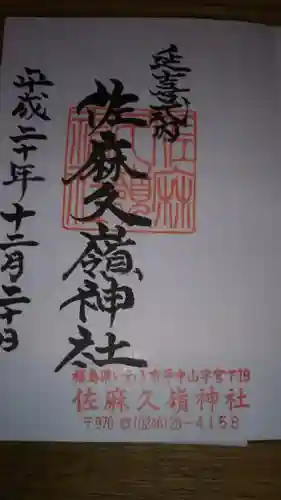 延喜式内
佐麻久嶺神社
平成二十年十二月二十日
佐麻久嶺神社
福島県いわき市平中山字宮下19
佐麻久嶺神社
〒970 ☎(0246)23-4158